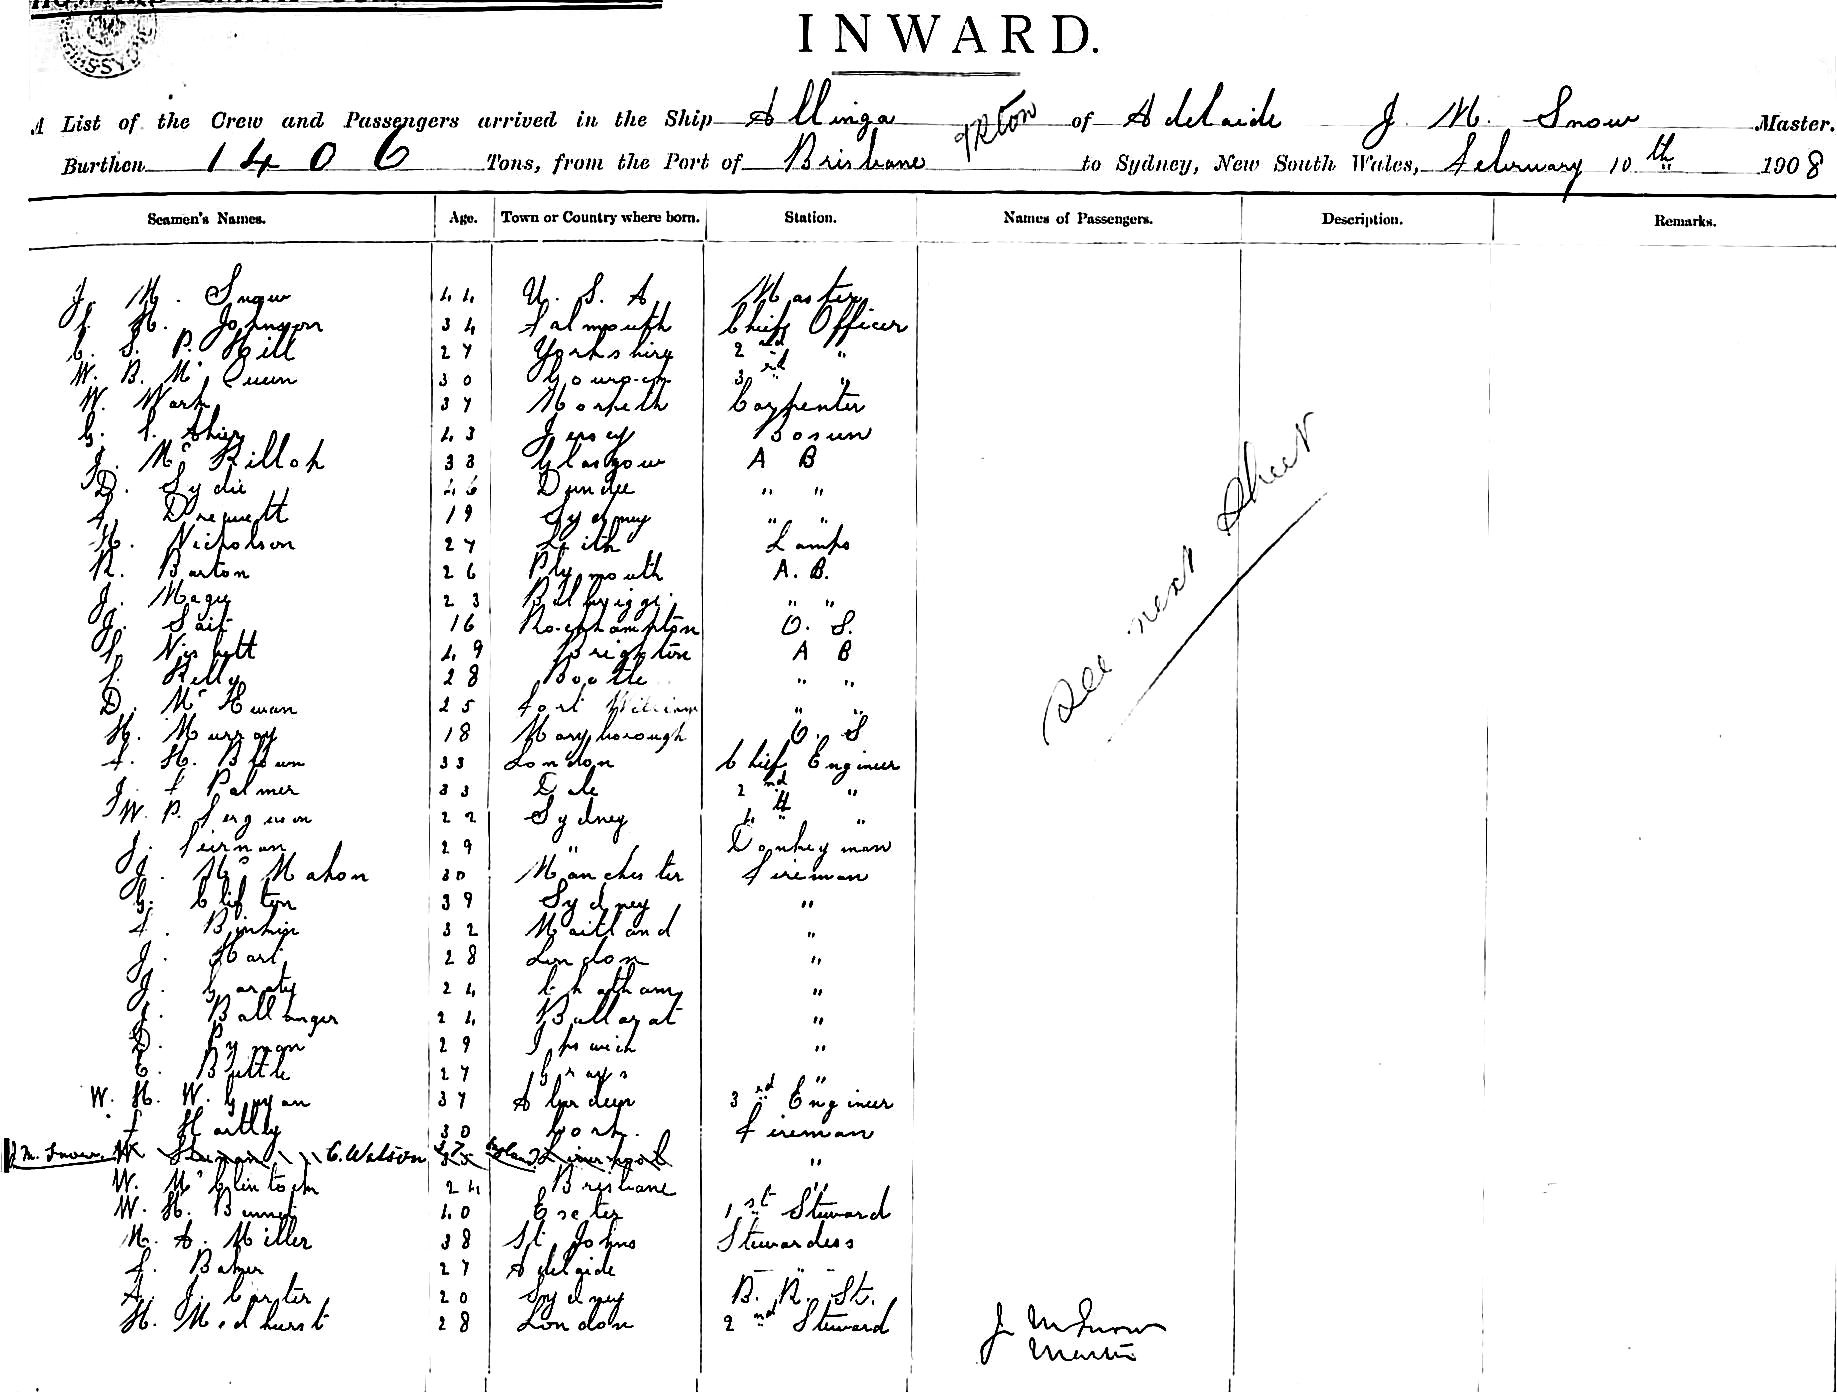 INWARD.
A List of the Crew and Passengers arrived in the Ship Allinga of Adelaide J. M. Snow Master.
Burthen 1406 Tons, from the Port of Brisbane to Sydney, New South Wales, February 10th 1908
Seamen's Names. Age. Town or Country where born. Station. Names of Passengers. Description. Remarks.
J. M. Snow 44 U. S. A Master
H. Johnson 34 Falmouth Chief Officer
C. S. P. Hill 27 Yorkshire 2nd "
W. B. Mc 30 3rd "
W. Wark 37 Morpeth Carpenter
G. 43 Jersey Bosun
J. Mc Killoh 33 Glasgow A B
D. Lydie 46 Dundee " "
Drewett 19 Sydney " "
H. Nicholson 27 Leith Lamps
R. Barton 26 Plymouth A. B.
J. Magee 23 " "
J. Sait 16 Roehampton O. S.
Nisbett 49 Brighton A B
Kelly 28 Bootle " "
D. Mc Ewan 25 Fort William " "
H. Murray 18 Maryborough O. S
H. 33 London Chief Engineer
J. F Palmer 33 2nd "
W. P. Ferguson 22 Sydney 4th "
J. 29 " Donkeyman
J. Mc Mahon 30 Manchester Fireman
G. Clifton 39 Sydney "
32 Maitland "
J. Hart 28 London "
J. Garaty 24 Chatham "
J. Ballanger 24 Ballarat "
D. Pyman 29 Ipswich "
C. Buttle 27 Grays "
W. H. W. 37 Aberdeen 3rd Engineer
F Hartley 30 Cork. Fireman
J. M. Snow. C. Watson 27 England Liverpool "
W. Mc Clintock 24 Brisbane "
W. H. Bennet 40 Exeter 1st Steward
M. A. Miller 38 St Johns Stewardess
F. Baker 27 Adelaide "
A. J. Carter 20 Sydney B. R. St.
H. Medhurst 28 London 2nd Steward
See next Sheet
J M Snow
Master